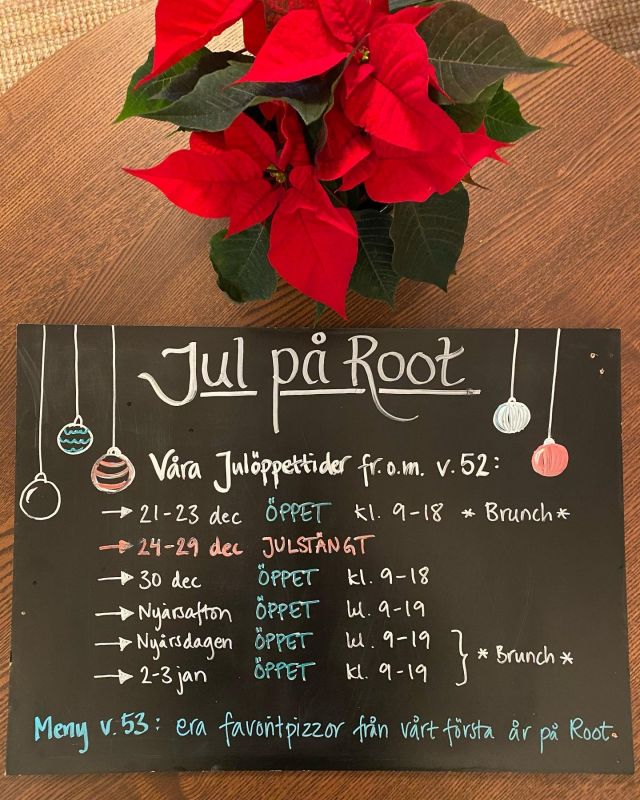 Jul på Root
Våra Julöppettider fr.o.m. v.52:
→ 21-23 dec ÖPPET kl. 9-18 *Brunch*
→ 24-29 dec JULSTÄNGT
→ 30 dec ÖPPET kl. 9-18
→ Nyårsafton ÖPPET kl. 9-19
→ Nyårsdagen ÖPPET kl. 9-19
→ 2-3 jan ÖPPET kl. 9-19
*Brunch*
Meny v.53: era favoritpizzor från vårt första år på Root.